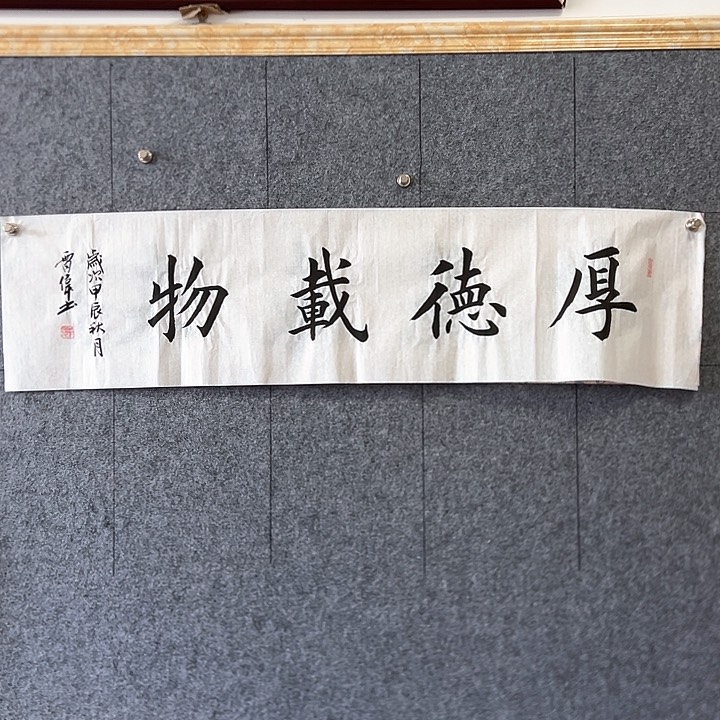 厚德載物
歲次甲辰秋月
雷偉书